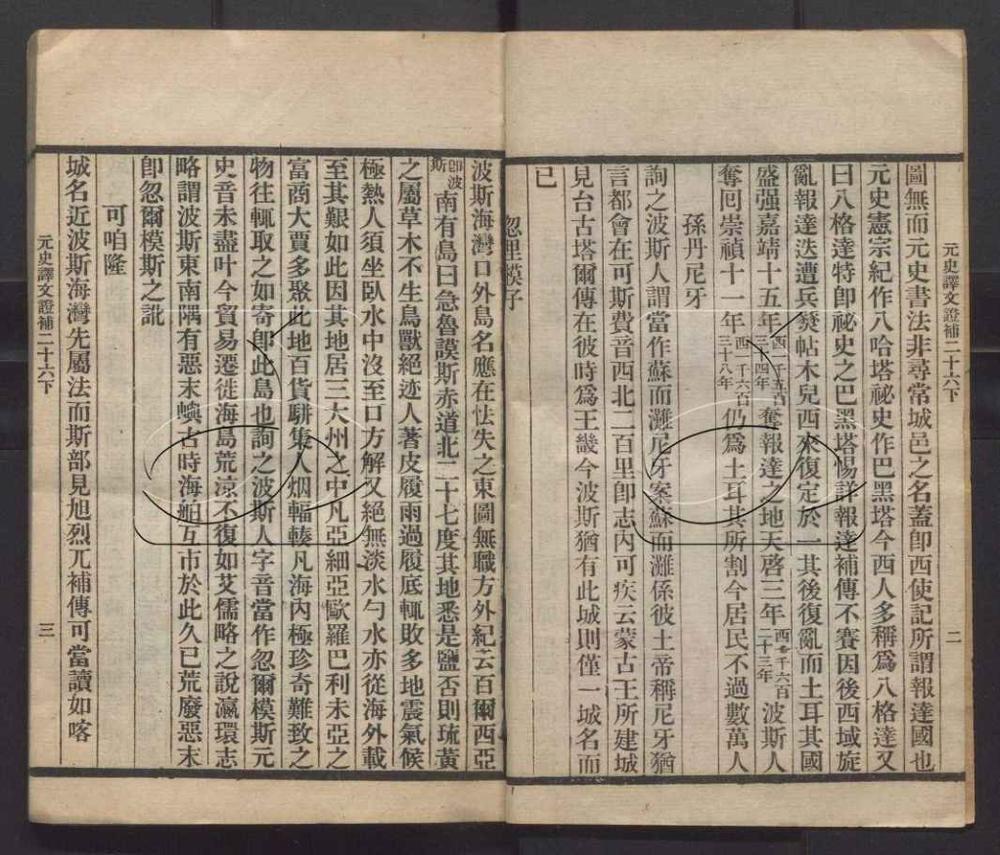 元史譯文證補二十六下
二
圖無而元史書法非尋常城邑之名蓋卽西使記所謂報達國也
元史憲宗紀作八哈塔祕史作巴黑塔今西人多稱爲八格達又
曰八格達特卽祕史之巴黑塔惕詳報達補傳不賽因後西域旋
亂報達迭遭兵燹帖木兒西來復定於一其後復亂而土耳其國
盛强嘉靖十五年西一千五百三十四年奪報達之地天啓三年西一千六百二十三年波斯人
奪回崇禎十一年西一千六百三十八年仍爲土耳其所割今居民不過數萬人
孫丹尼牙
詢之波斯人謂當作蘇而灘尼牙案蘇而灘係彼土帝稱尼牙猶
言都會在可斯費音西北二百里卽志內可疾云蒙古王所建城
見台古塔爾傳在彼時爲王畿今波斯猶有此城則僅一城名而
已
忽里模子
波斯海灣口外島名應在怯失之東圖無職方外紀云百爾西亞
卽波斯南有島曰忽魯謨斯赤道北二十七度其地悉是鹽否則琉黃
之屬草木不生鳥獸絕迹人著皮履雨過履底輒敗多地震氣候
極熱人須坐臥水中沒至口方解又絕無淡水勺水亦從海外載
至其艱如此因其地居三大州之中凡亞細亞歐羅巴利未亞之
富商大賈多聚此地百貨駢集人烟輻輳凡海內極珍奇難致之
物往輒取之如寄卽此島也詢之波斯人字音當作忽爾模斯元
史音未盡叶今貿易遷徙海島荒涼不復如艾儒略之說瀛環志
略謂波斯東南隅有惡末嶼古時海舶互市於此久已荒廢惡末
卽忽爾模斯之訛
可咱隆
城名近波斯海灣先屬法而斯部見旭烈兀補傳可當讀如喀
元史譯文證補二十六下
三